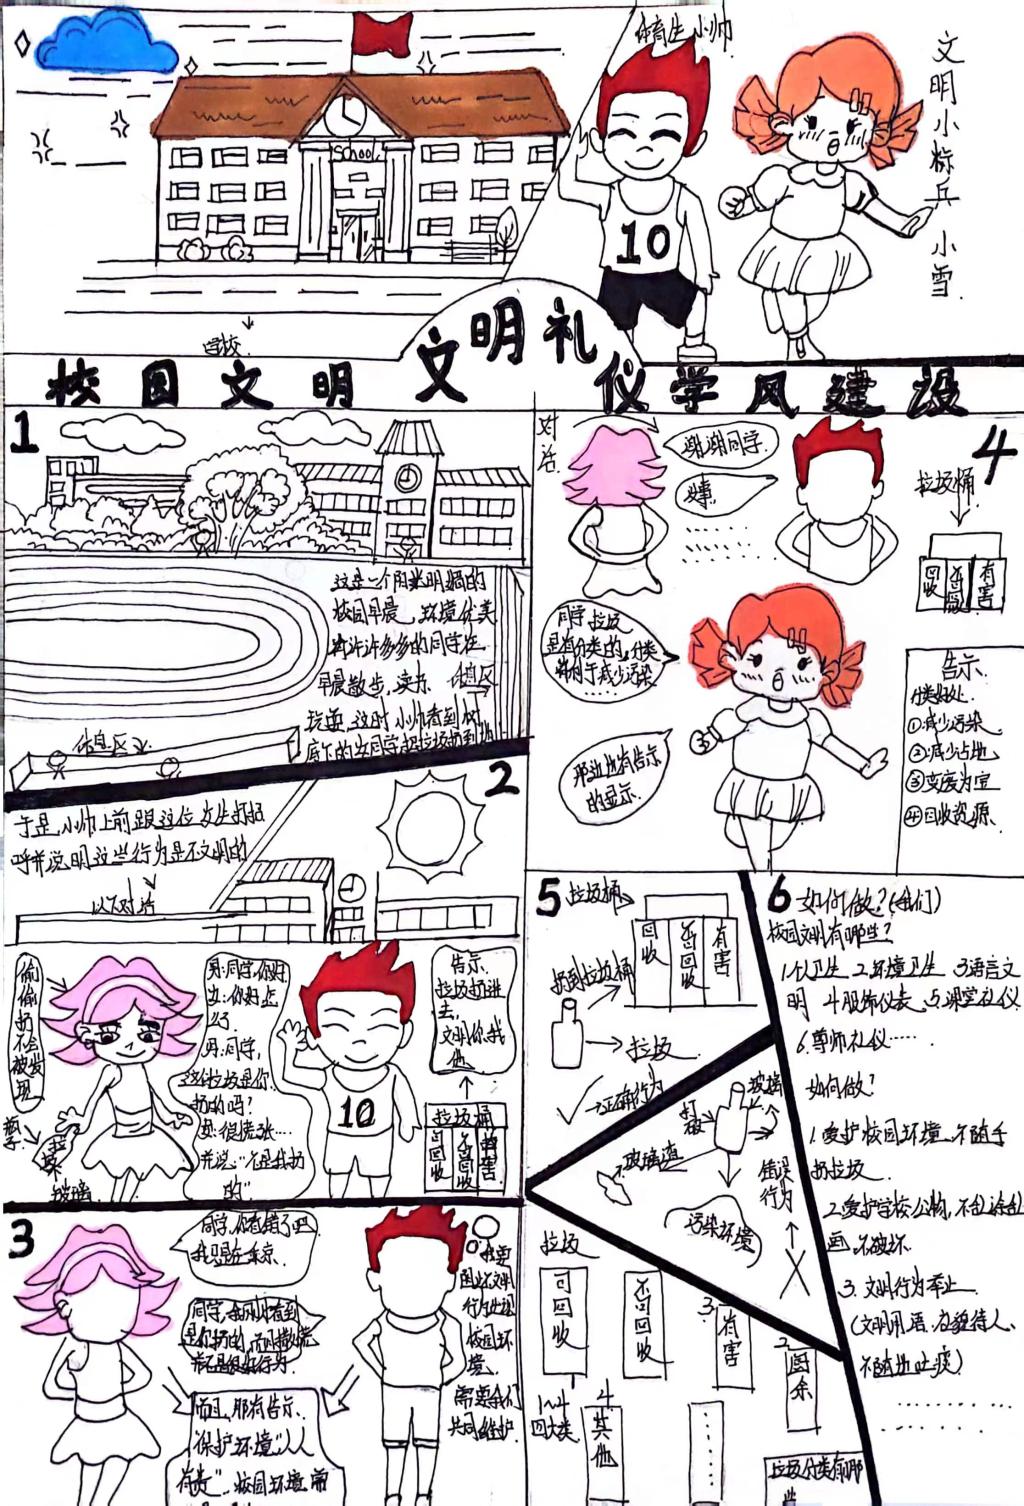 体育生小帅
文明小标兵 小雪
School
学校
校园文明 文明礼仪 学风建设
1
这是一个阳光明媚的
校园早晨，环境优美
有许许多多的同学在
早晨散步，读书、休息区
玩耍，这时小帅看到树
底下的女同学把垃圾扔到地
休息区
2
于是，小帅上前跟这位女生打招
呼并说明这些行为是不文明的
以下对话
偷偷扔不会被发现
瓶子
垃圾
玻璃
男:同学,你好
女:你好怎
么了.
男:同学,
这个垃圾是你
扔的吗?
女:很慌张…
并说:“不是我扔
的”
10
告示
垃圾扔进
去,
文明你我
他
垃圾桶
可回收
不可回收
有害
3
同学,你看错了吧
我只是在
同学,我刚刚看到
是你扔的,而且撒谎
行为.
而且,那有告示.
保护环境"人人
有责"..校园环境,需
我要
阻止不文明
行为
校园环
境.
需要我们
共同维护
4
对话
谢谢同学.
没事.
垃圾桶
回收
不可回收
有害
同学,垃圾
是有分类的,分类
有利于减少污染
那边也有告示
的显示.
告示.
分类好处.
①减少污染
②减少占地
③变废为宝
④回收资源.
5
垃圾桶
回收
不可回收
有害
扔到垃圾桶
垃圾
正确行为
玻璃
打破
玻璃渣
错误行为
污染环境
垃圾
可回收
不可回收
3.
有害
2
厨余
1~4
四大类
4.
其他
垃圾分类有哪
些
6 如何做?(我们)
校园文明有哪些?
1.个人卫生 2.环境卫生 3语言文
明 4服饰仪表 5.课堂礼仪
6.尊师礼仪……
如何做?
1.爱护校园环境、不随手
扔垃圾.
2.爱护学校公物,不乱涂乱
画.不破坏.
3.文明行为举止
(文明用语,礼貌待人、
不随地吐痰)